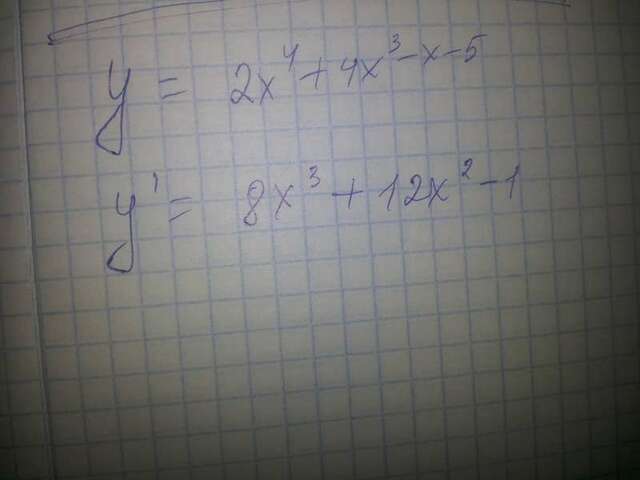 y = 2x⁴ + 4x³ - x - 5
y' = 8x³ + 12x² - 1